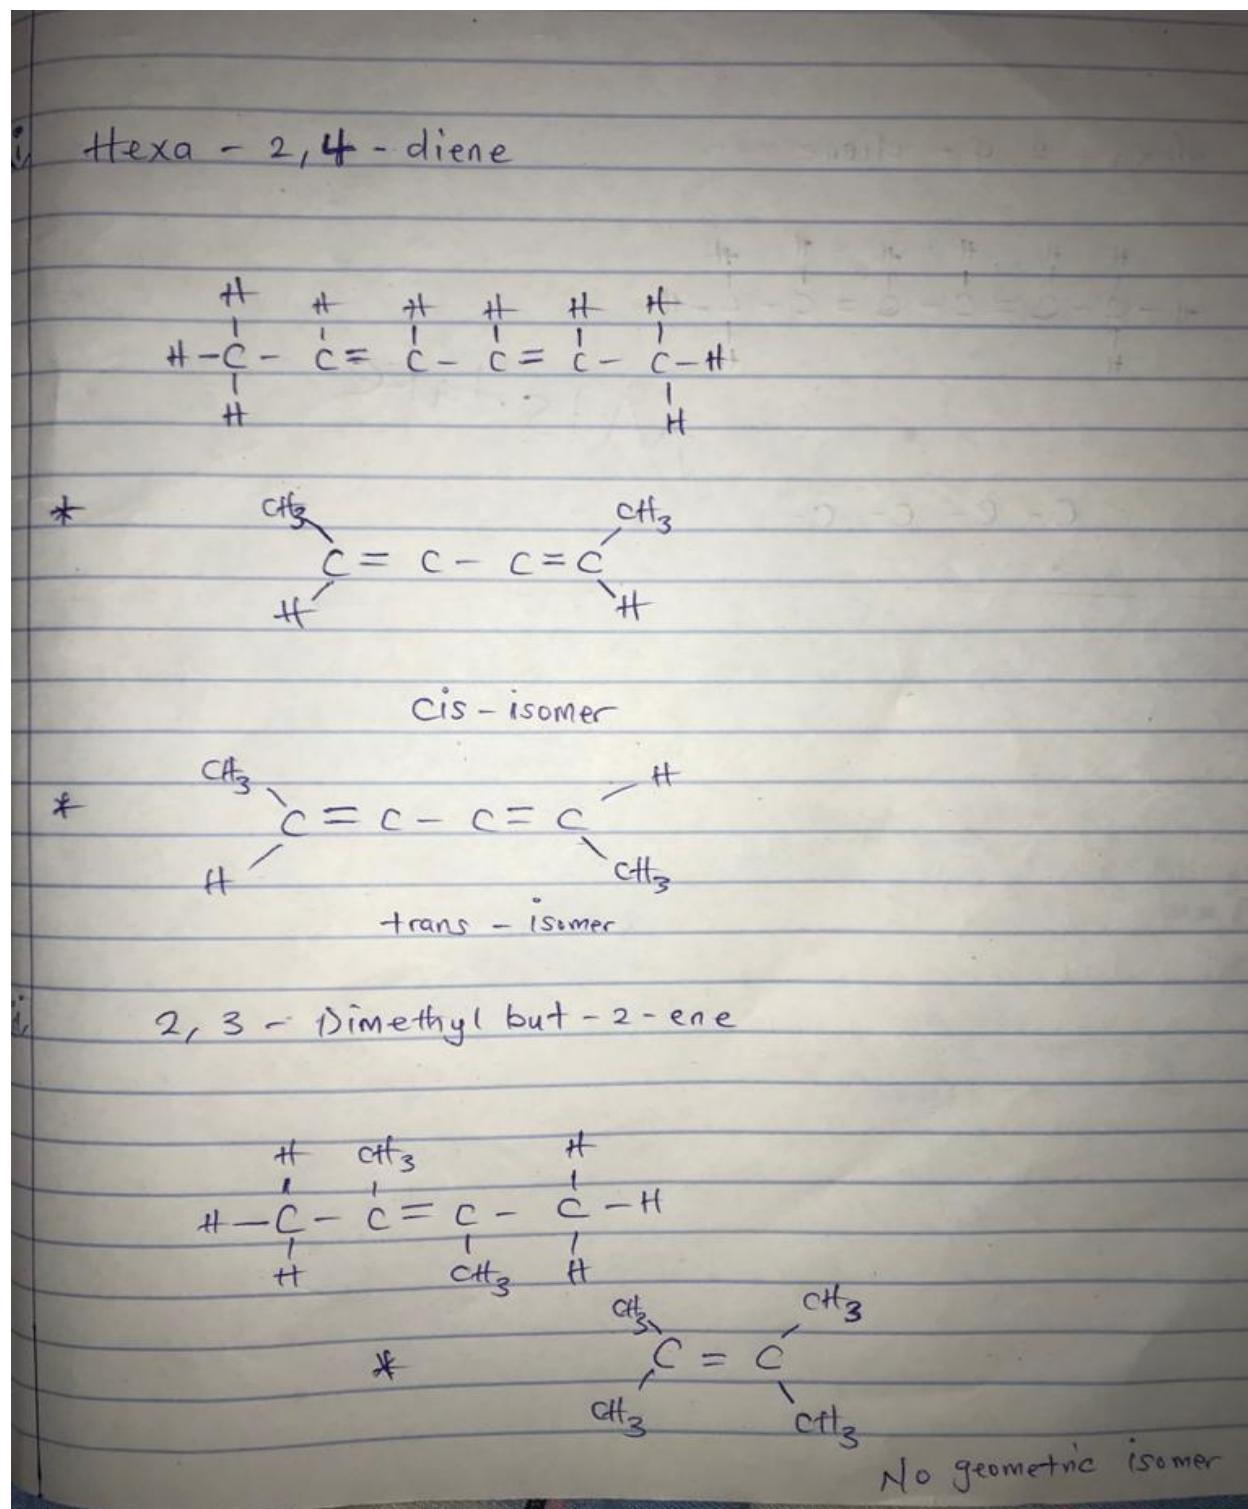 i, Hexa - 2,4 - diene
H H H H H H
H - C - C = C - C = C - C - H
H H
* CH3 CH3
C = C - C = C
H H
cis - isomer
CH3 H
* C = C - C = C
H CH3
trans - isomer
2, 3 - Dimethyl but - 2 - ene
H CH3 H
H - C - C = C - C - H
H CH3 H
CH3 CH3
* C = C
CH3 CH3
No geometric isomer